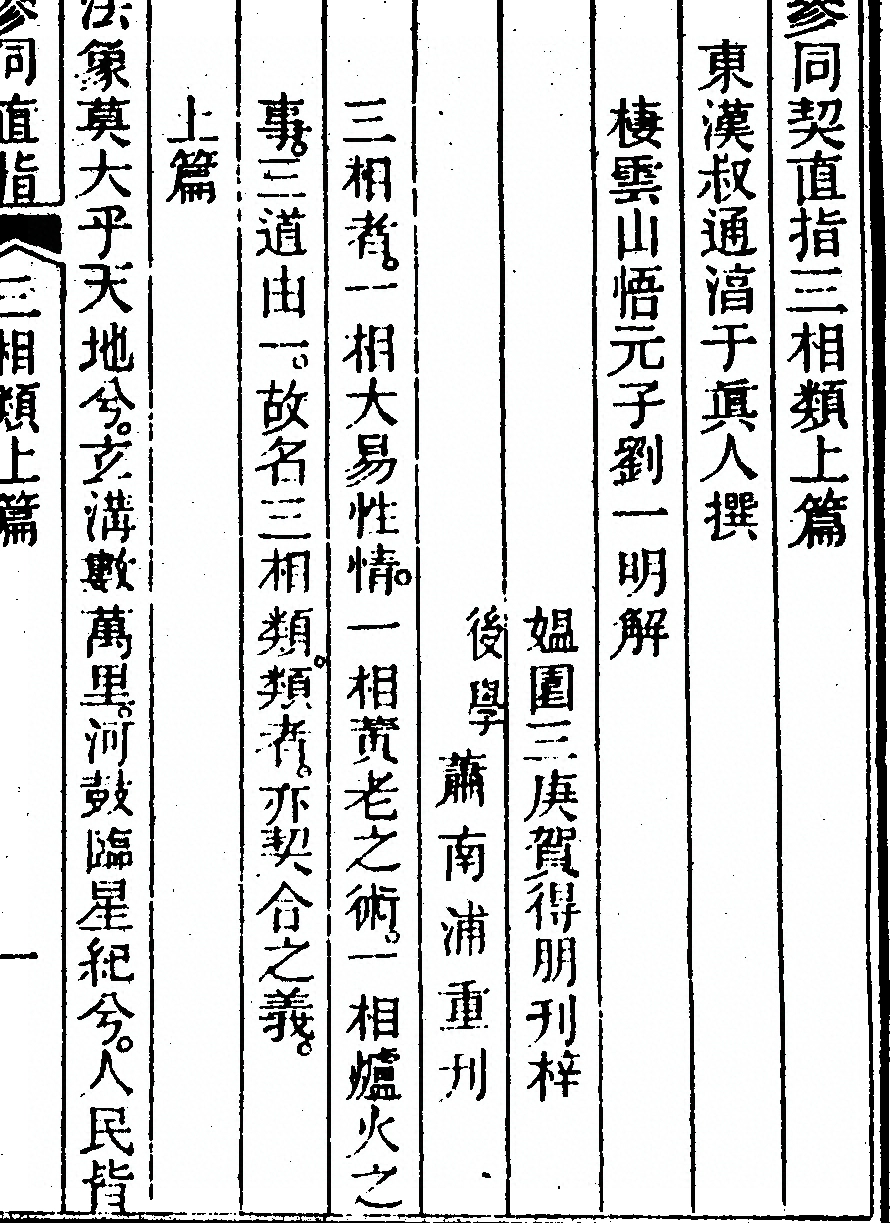 參同契直指三相類上篇
東漢叔通淳于眞人撰
棲雲山悟元子劉一明解
媼圍三庚賀得朋刊梓
後學蕭南浦重刊
三相者。一相大易性情。一相黃老之術。一相爐火之
事。三道由一。故名三相類。類者。亦契合之義。
上篇
法象莫大乎天地兮。玄溝數萬里。河鼓臨星紀兮。人民皆
參同直指 三相類上篇 一